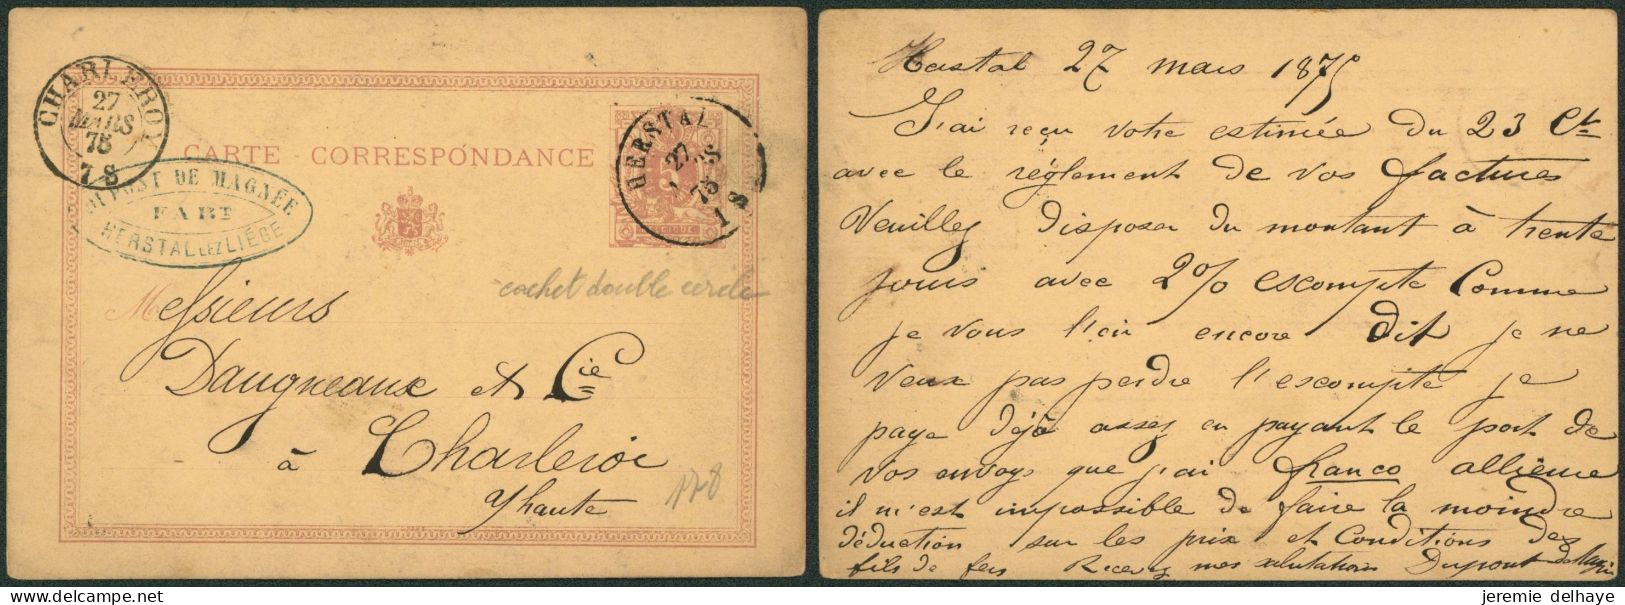 CHARLEROY
27
MARS
75
7 S
CARTE - CORRESPONDANCE
HERSTAL
27
75
1 S
5
DUPONT DE MAGNÉE
FABT
HERSTAL LEZ LIÉGE
cachet double cercle
Messieurs
Daugneaux et Cie
à Charleroi
V haute
178
Herstal 27 mars 1875
J'ai reçu votre estimée du 23 Ct
avec le réglement de vos factures
Veuillez disposer du montant à trente
jours avec 2% escompte Comme
je vous l'ai encore dit je ne
veux pas perdre l'escompte je
paye déjà assez en payant le port de
vos envoys que j'ai franco allieurs
il m'est impossible de faire la moindre
déduction sur les prix et Conditions des
fils de fers Recevez mes salutations Dupont
www.delcampe.net
jeremie delhaye